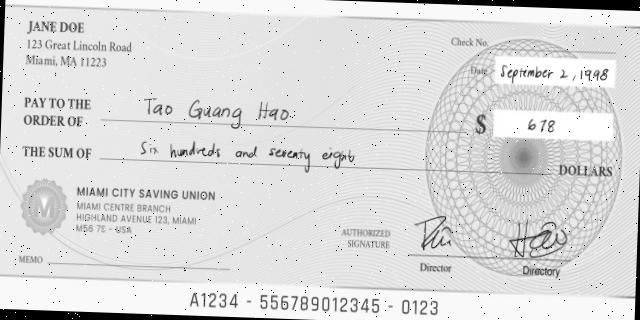 JANE DOE
123 Great Lincoln Road
Miami, MA 11223
Check No.
Date September 2, 1998
PAY TO THE
ORDER OF Tao Guang Hao
$ 678
THE SUM OF Six hundreds and seventy eights
DOLLARS
MIAMI CITY SAVING UNION
MIAMI CENTRE BRANCH
HIGHLAND AVENUE 123, MIAMI
M56 7S - USA
M
AUTHORIZED
SIGNATURE
Director
Directory
MEMO
A1234 - 556789012345 - 0123